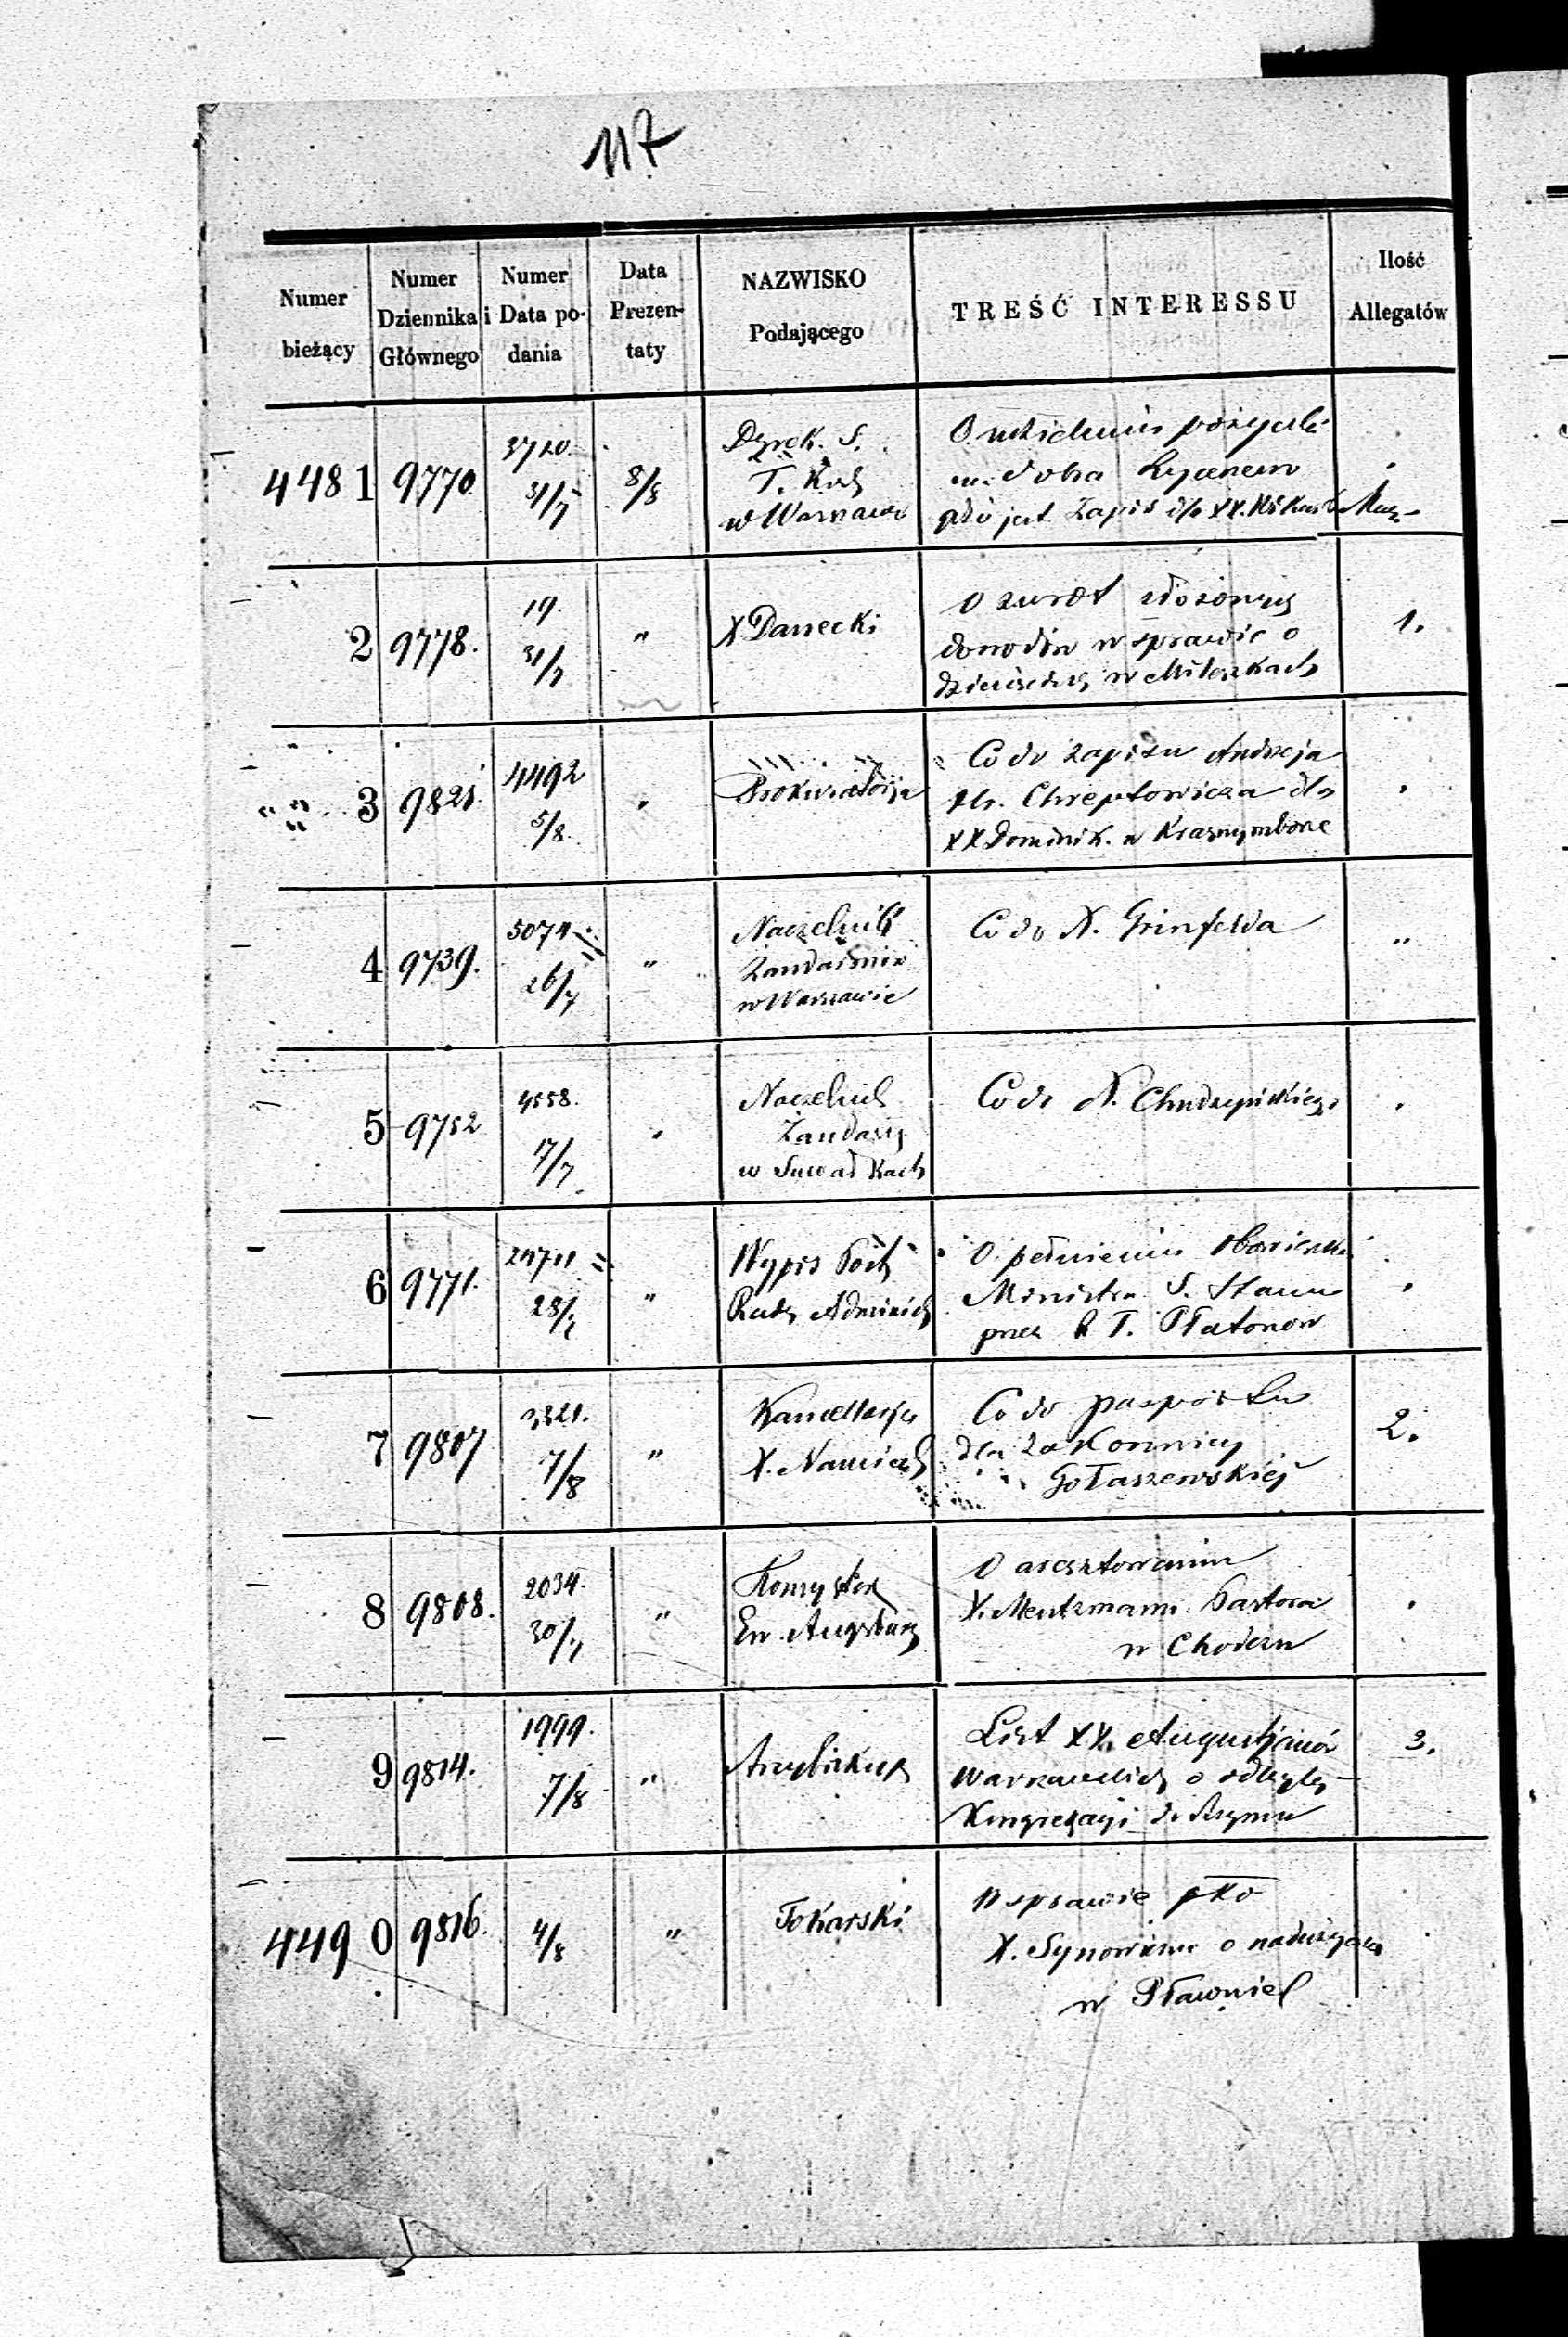 117
Numer bieżący
Numer Dziennika Głównego
Numer i Data podania
Data Prezentaty
NAZWISKO Podającego
TREŚĆ INTERESSU
Ilość Allegatów
4481 9770 3720. 31/7 8/8
Dyrek. S.
T. Kred
w Warszawie
O udzieleniu pożyczki
na dobra
gdzie jest Zapis dla XX.
2 9778. 19. 31/7 "
X Danecki
O zwrot złożonych
dowodów w sprawie o
dziesięcinę w Mileszkach
1.
3 9821. 4492 5/8. "
Prokuratorja
Co do zapisu Andrzeja
Hr. Chreptowicza dla
XX Dominik. w Krasnymborze
4 9739. 5074 26/7 "
Naczelnik
Żandarmów
w Warszawie
Co do X. Grinfelda
"
5 9752 4558. 17/7 "
Naczelnik
Żandarm
w Suwałkach
Co do X.
6 9771. 28/7 "
Wypis Prot
Rady Administ
O pełnieniu Obowiązku
Ministra S. Stanu
przez R T. Płatonow
7 9807 3321. 7/8 "
Kancellarja
X. Namiest
Co do paszportu
dla Zakonnicy
Gołaszewskiej
2.
8 9808. 2034. 30/7 "
Konsystorz
Ew. Augsburg
O aresztowaniu
X. Mentzmann Pastora
w Chodczu
9 9814. 1999. 7/8 "
Arcybiskup
List XX. Augustjanów
Warszawskich o odbytej
Kongregacji do Rzymu
3.
4490 9816. 4/8 "
Tokarski
W sprawie pko
X. Synowiewi o nadużycia
w